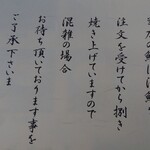 注文を受けてから捌き
焼き上げていますので
混雑の場合
お待ち頂いております事を
ご了承下さいま